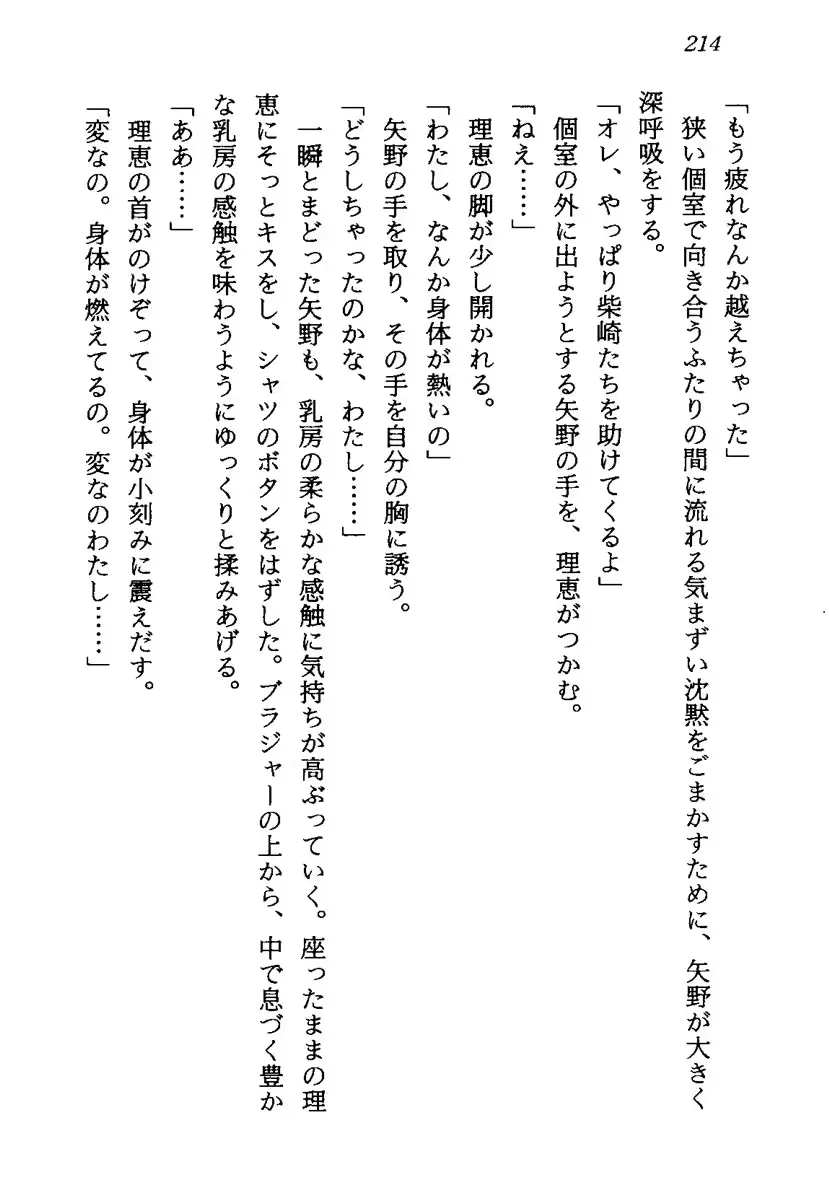 214
「もう疲れなんか越えちゃった」
　狭い個室で向き合うふたりの間に流れる気まずい沈黙をごまかすために、矢野が大きく
深呼吸をする。
「オレ、やっぱり柴崎たちを助けてくるよ」
　個室の外に出ようとする矢野の手を、理恵がつかむ。
「ねえ……」
　理恵の脚が少し開かれる。
「わたし、なんか身体が熱いの」
　矢野の手を取り、その手を自分の胸に誘う。
「どうしちゃったのかな、わたし……」
　一瞬とまどった矢野も、乳房の柔らかな感触に気持ちが高ぶっていく。座ったままの理
恵にそっとキスをし、シャツのボタンをはずした。ブラジャーの上から、中で息づく豊か
な乳房の感触を味わうようにゆっくりと揉みあげる。
「ああ……」
　理恵の首がのけぞって、身体が小刻みに震えだす。
「変なの。身体が燃えてるの。変なのわたし……」